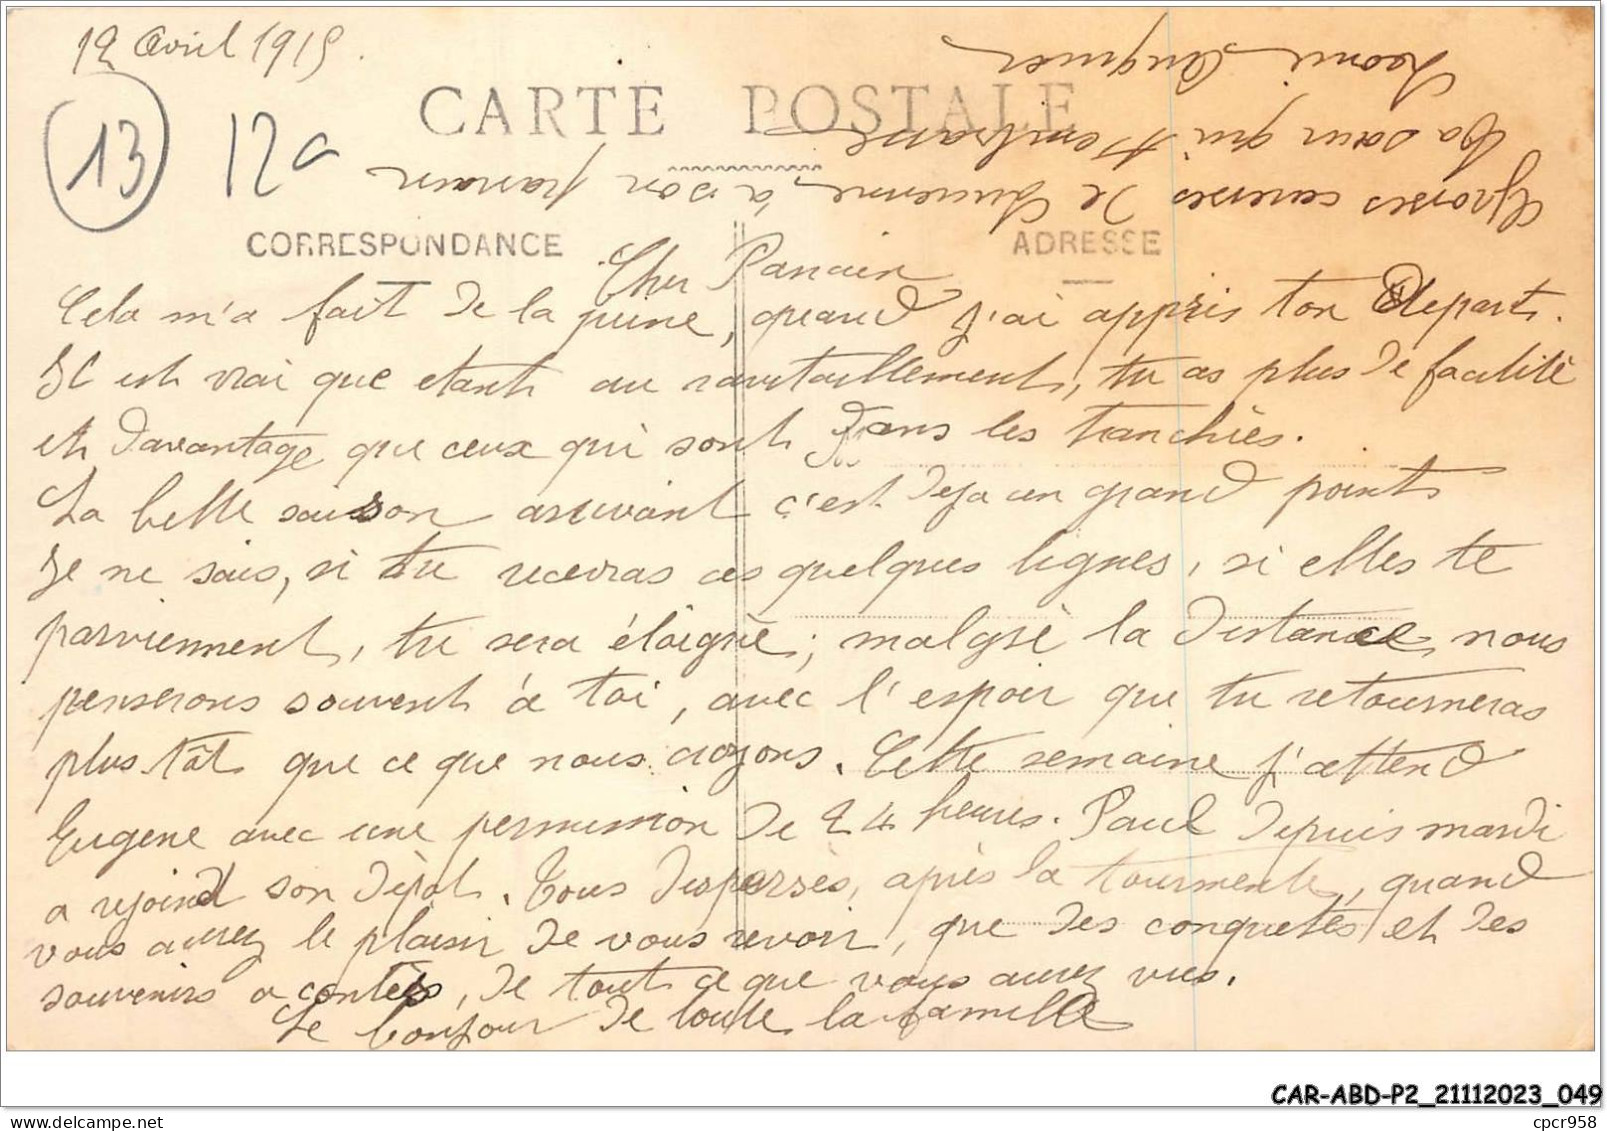 12 Avril 1915.
13
12
CARTE POSTALE
CORRESPONDANCE
ADRESSE
Cher Parrain
Cela m'a fait de la peine, quand j'ai appris ton depart.
Il est vrai que etant au ravitaillement, tu as plus de facilité
et davantage que ceux qui sont dans les tranchès.
La belle saison arrivant c'est deja un grand point
Je ne sais, si tu recevras ces quelques lignes, si elles te
parviennent, tu sera éloigné; malgré la distance nous
penserons souvent à toi, avec l'espoir que tu retourneras
plus tât que ce que nous croyons. Cette semaine j'attend
Eugene avec une permission de 24 heures. Paul depuis mardi
a rejoind son dépot. Tous dispersès, après la tourmente, quand
vous aurez le plaisir de vous revoir, que des conquetes et des
souvenirs a contés, de tout ce que vous aurez vus.
Le bonjour de toute la famille
Grosses caresses de Lucienne, à son parrain
Ta sœur qui t'embrasse
CAR-ABD-P2_21112023_049
cpcr958